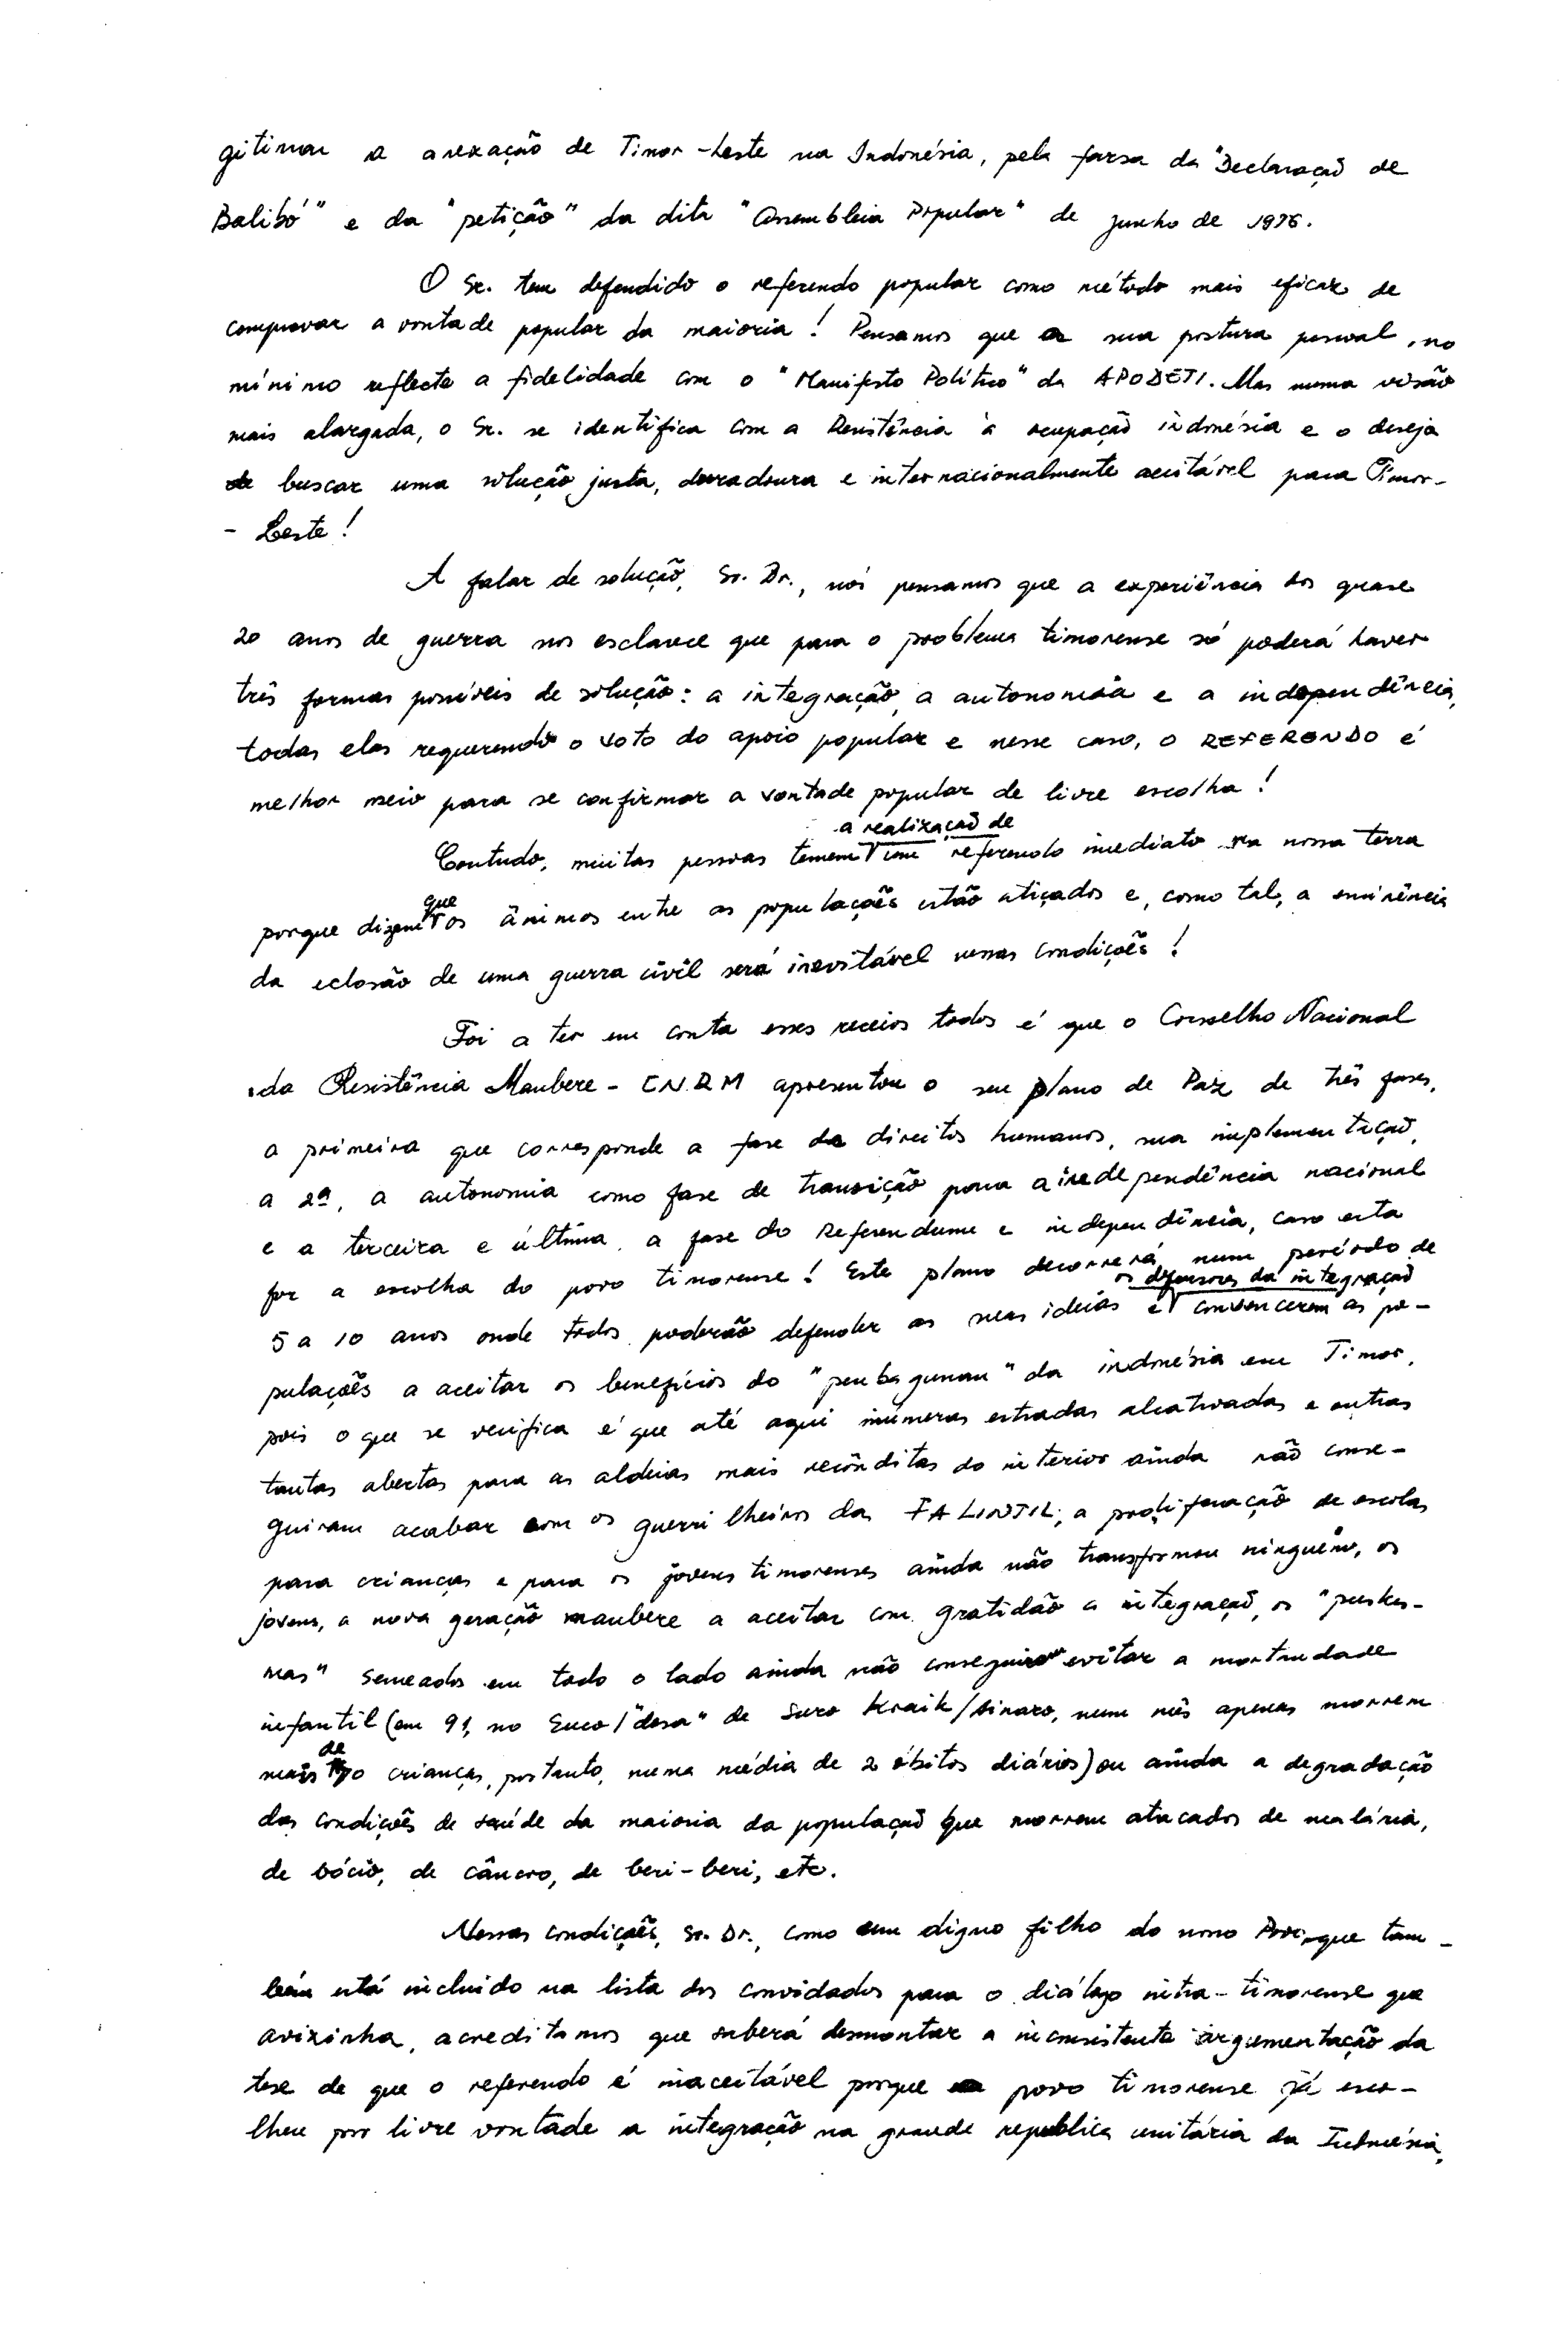 gitimar a anexação de Timor-Leste na Indonésia, pela farsa da "Declaração de
Balibó" e da "petição" da dita "Assembleia Popular" de junho de 1976.
O Sr. tem defendido o referendo popular como método mais eficaz de
comprovar a vontade popular da maioria! Pensamos que a sua postura pessoal, no
mínimo reflecte a fidelidade com o "Manifesto Político" da APODETI. Mas numa visão
mais alargada, o Sr. se identifica com a Resistência à ocupação indonésia e o deseja
de buscar uma solução justa, duradoura e internacionalmente aceitável para Timor-
- Leste!
A falar de solução, Sr. Dr., nós pensamos que a experiência dos quase
20 anos de guerra nos esclarece que para o problema timorense só poderá haver
três formas possíveis de solução: a integração, a autonomia e a independência,
todas elas requerendo o voto do apoio popular e nesse caso, o REFERENDO é
melhor meio para se confirmar a vontade popular de livre escolha!
a realização de
Contudo, muitas pessoas temem um referendo imediato na nossa terra
que
porque dizem os ânimos entre as populações estão atiçados e, como tal, a eminência
da eclosão de uma guerra civil será inevitável nessas condições!
Foi a ter em conta esses receios todos é que o Conselho Nacional
da Resistência Maubere - CNRM apresentou o seu plano de Paz de três fases,
a primeira que corresponde a fase de direitos humanos, sua implementação,
a 2ª, a autonomia como fase de transição para a independência nacional
e a terceira e última, a fase do Referendum e independência, caso esta
for a escolha do povo timorense! Este plano decorrerá num período de
os defensores da integração
5 a 10 anos onde todos poderão defender as suas ideias e convencerem as po-
pulações a aceitar os benefícios do "pembagunan" da indonésia em Timor,
pois o que se verifica é que até aqui inúmeras estradas alcatroadas e outras
tantas abertas para as aldeias mais recônditas do interior ainda não conse-
guiram acabar com os guerrilheiros da FALINTIL; a proliferação de escolas
para crianças e para os jovens timorenses ainda não transformou ninguém, os
jovens, a nova geração maubere a aceitar com gratidão a integração, os "puskes-
mas" semeados em todo o lado ainda não conseguiram evitar a mortandade
infantil (em 91, no Suco/"desa" de Suro Kraik/Ainaro, num mês apenas morrem
de
mais 70 crianças, portanto, numa média de 2 óbitos diários) ou ainda a degradação
das condições de saúde da maioria da população que morrem atacados de malária,
de bócio, de câncro, de beri-beri, etc.
Nessas condições, Sr. Dr., como um digno filho do nosso Povo, que tam-
bém está incluido na lista dos convidados para o diálogo intra-timorense que
avizinha, acreditamos que saberá desmontar a inconsistente argumentação da
tese de que o referendo é inaceitável porque povo timorense já esco-
lheu por livre vontade a integração na grande republica unitária da Indonésia,